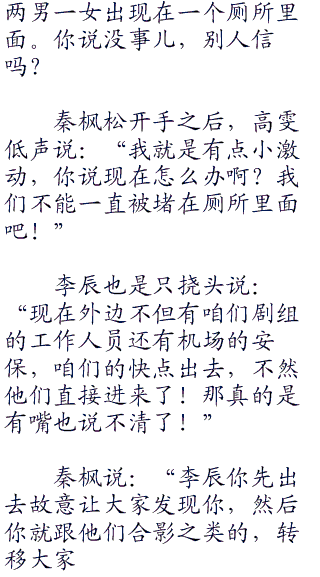 两男一女出现在一个厕所里
面。你说没事儿，别人信
吗？
秦枫松开手之后，高雯
低声说：“我就是有点小激
动，你说现在怎么办啊？我
们不能一直被堵在厕所里面
吧！”
李辰也是只挠头说：
“现在外边不但有咱们剧组
的工作人员还有机场的安
保，咱们的快点出去，不然
他们直接进来了！那真的是
有嘴也说不清了！”
秦枫说：“李辰你先出
去故意让大家发现你，然后
你就跟他们合影之类的，转
移大家